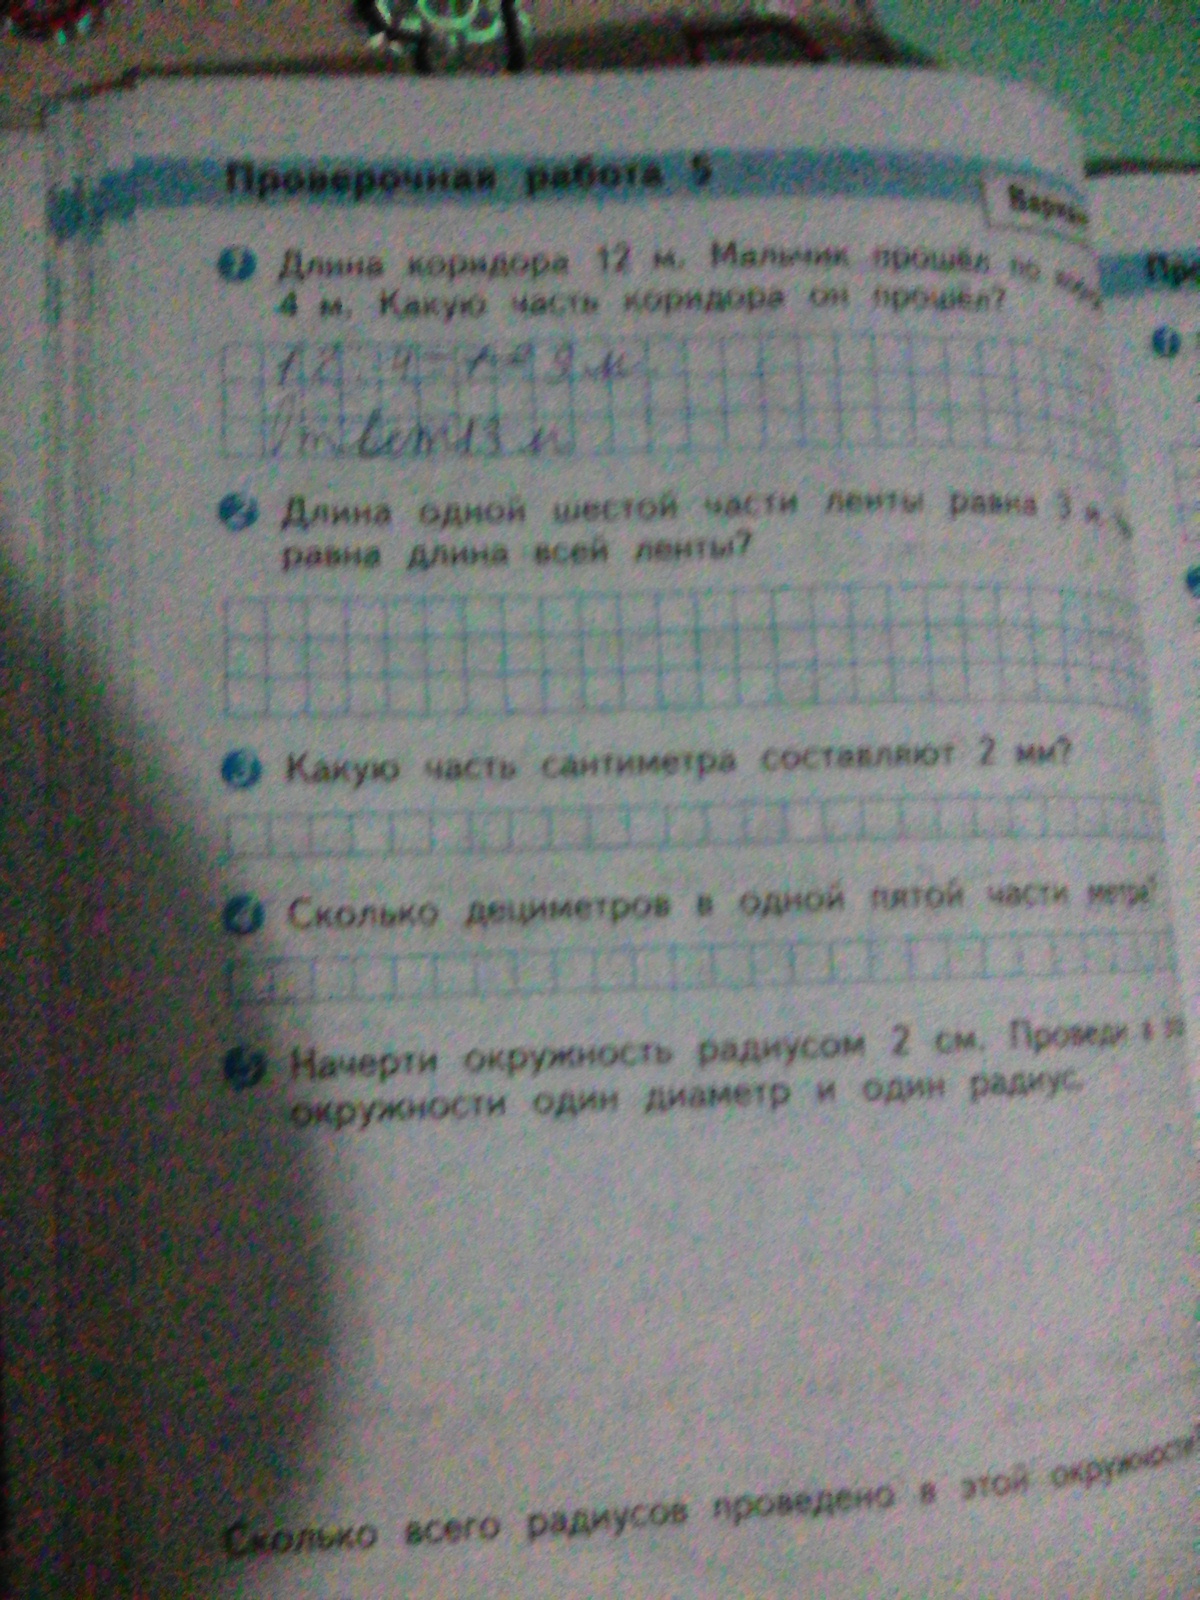 Проверочная работа 5
Вариан
1 Длина коридора 12 м. Мальчик прошёл по
4 м. Какую часть коридора он прошёл?
2 Длина одной шестой части ленты равна 3 м
равна длина всей ленты?
3 Какую часть сантиметра составляют 2 мм?
4 Сколько дециметров в одной пятой части метра?
5 Начерти окружность радиусом 2 см. Проведи в
окружности один диаметр и один радиус.
Сколько всего радиусов проведено в этой окружности?
Про
1